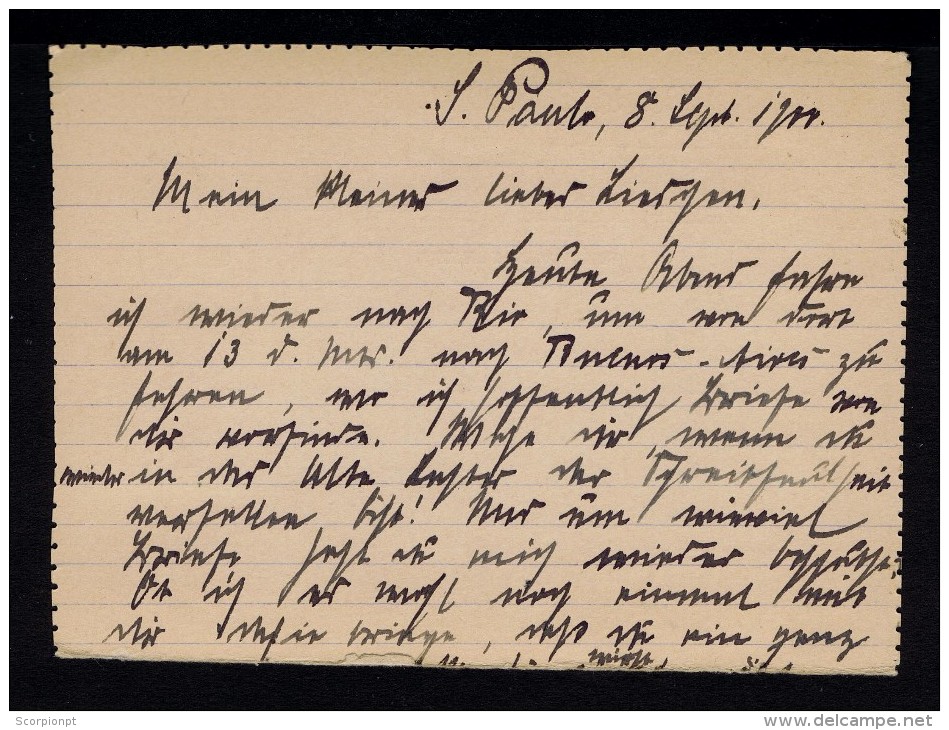 S. Paulo, 8. Sept. 1900.
Mein kleines liebes Lieschen,
Heute Abend fahre
ich wieder nach Rio, um von dort
am 13 d. Mts. nach Buenos-Aires zu
fahren, wo ich hoffentlich Briefe von
dir vorfinde. Wehe dir, wenn du
wieder in das alte Laster der Schreibfaulheit
verfallen bist! Und um wieviel
Briefe hast du mich wieder
Ob ich es wohl noch einmal mit
dir dahin bringe, daß du ein ganz
wirst
Scorpionpt
www.delcampe.net